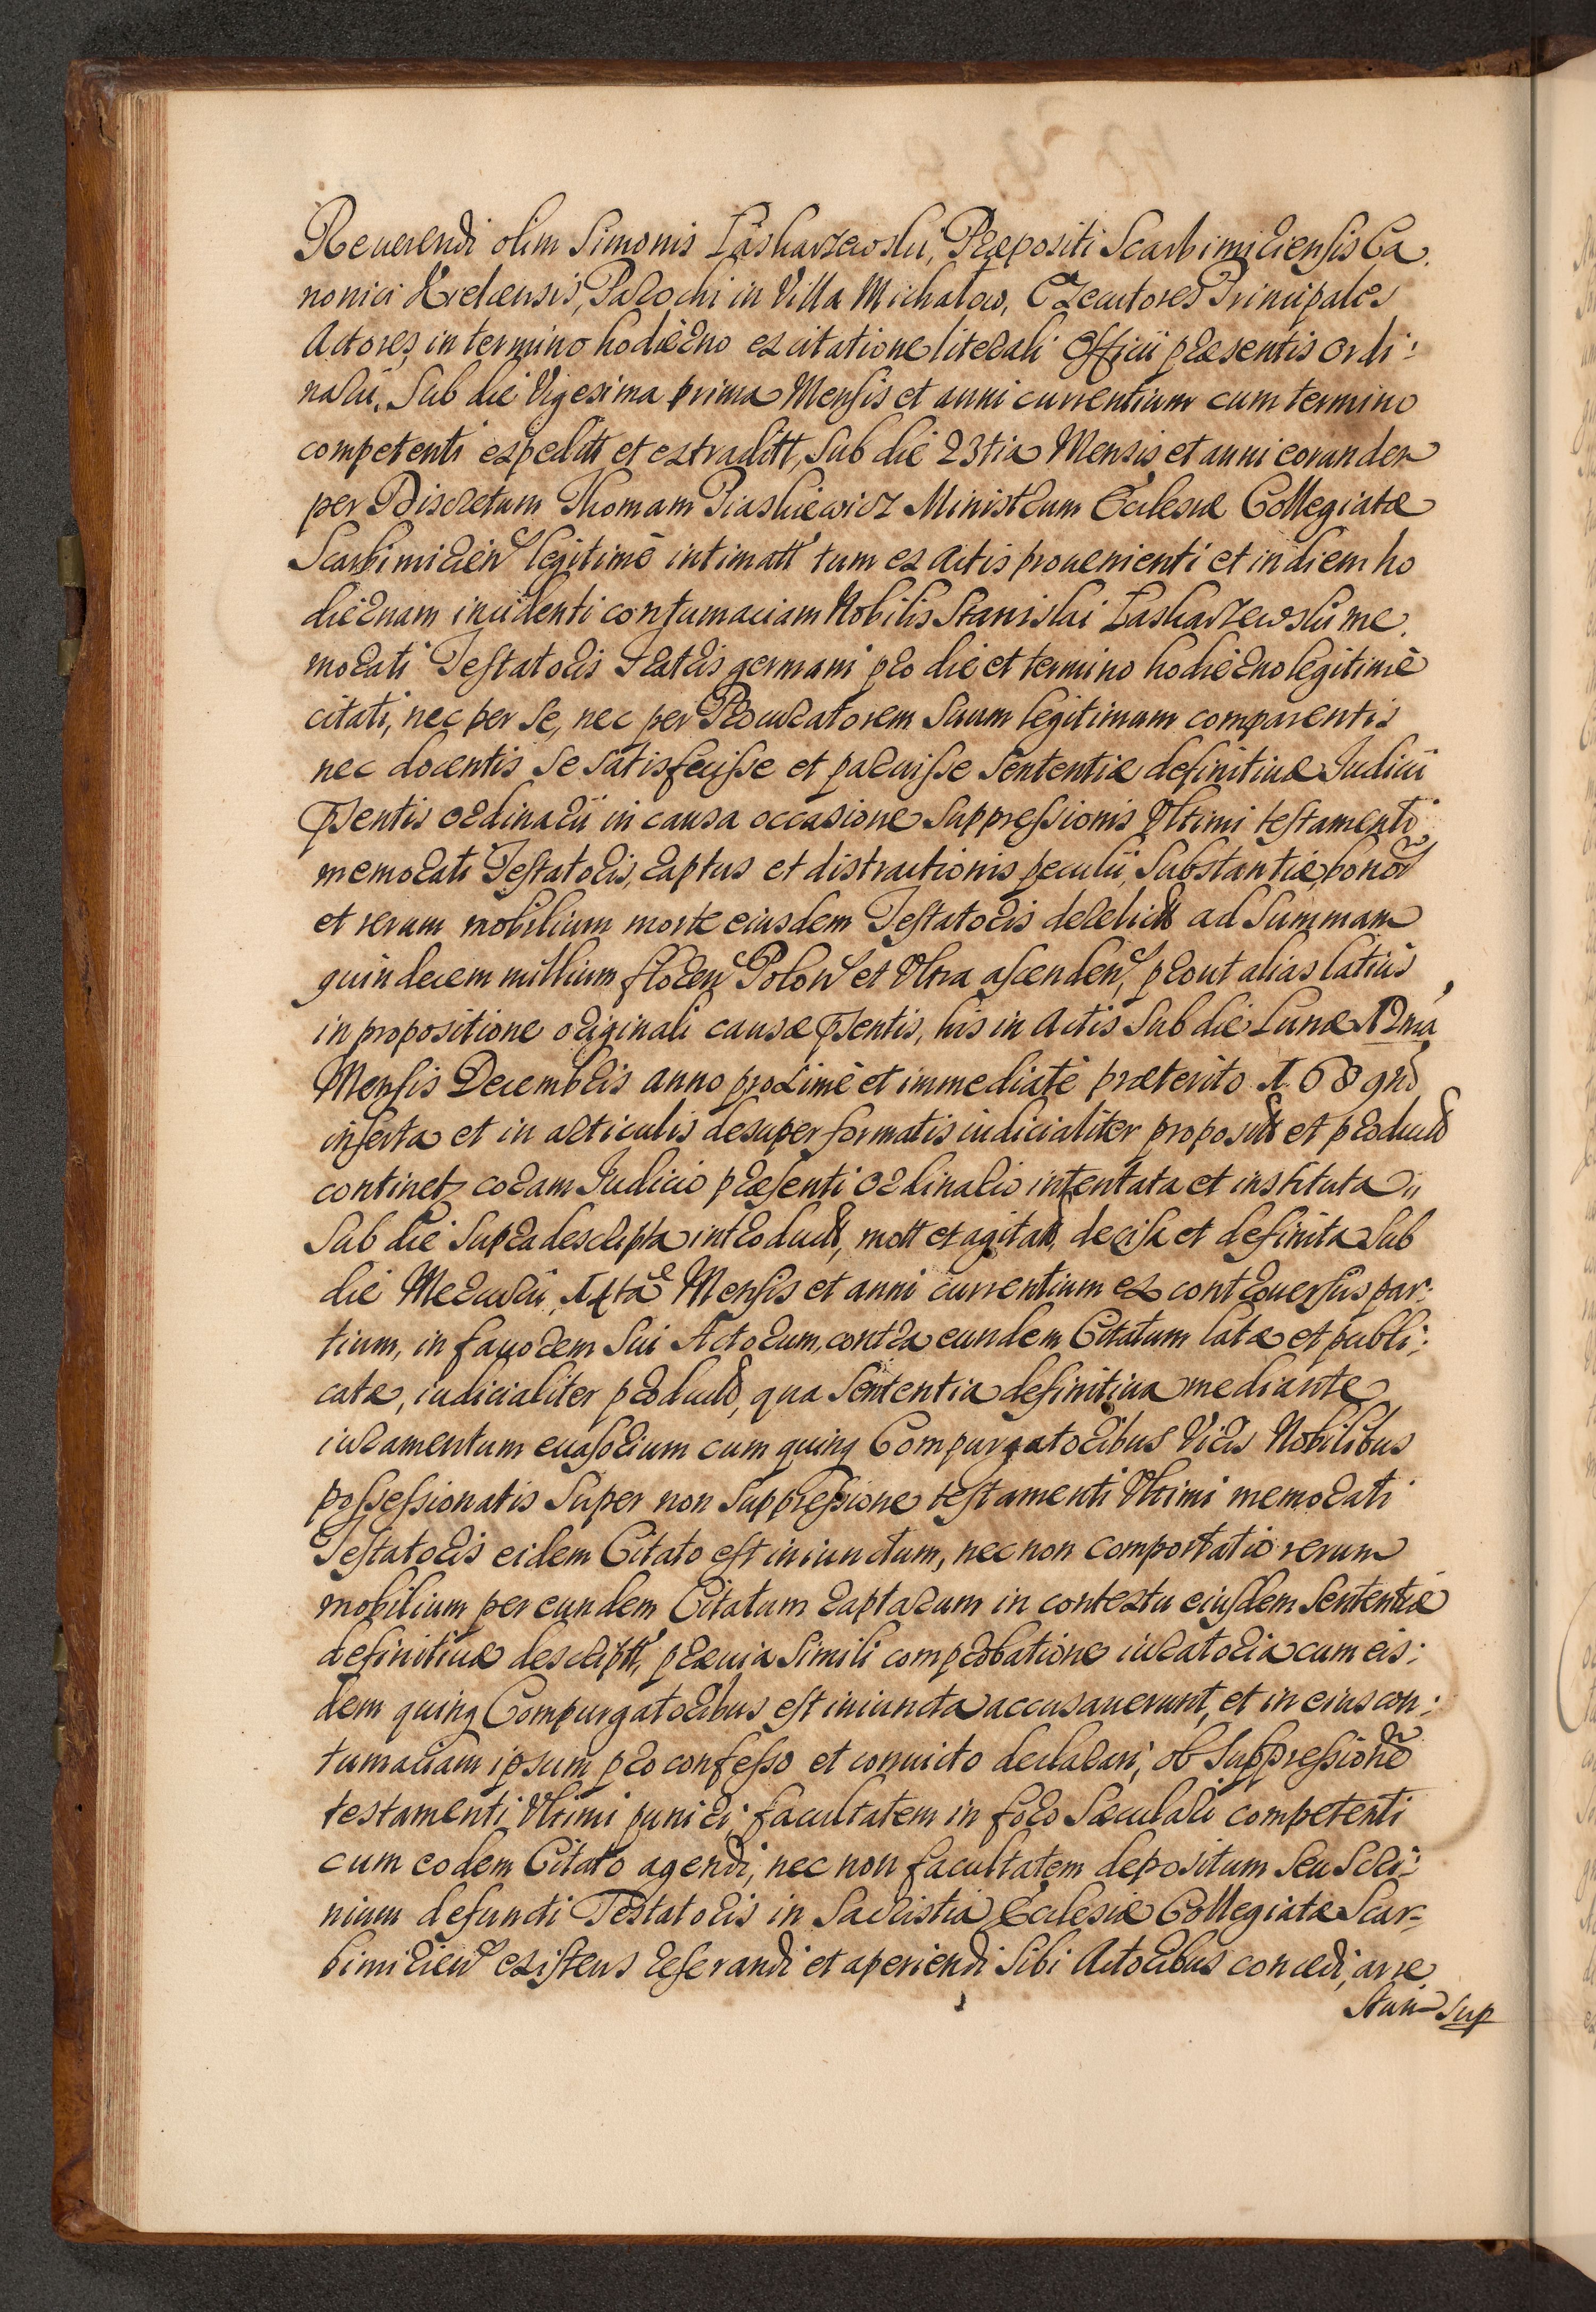 Reuerendi olim Simonis Łaskarzewski, Præpositi Scarbimiriensis Ca.
nonici Kielcensis, Parochi in Villa Michałow, Exequtores Principales
Actores, in termino hodièrno ex citatione literali Officii præsentis ordi:
narii, Sub die Vigesima prima Mensis et anni currentium cum termino
competenti expeditt et extraditt, Sub die 23tia Mensis et anni eorundem
per Discretum Thomam Piaskiewicz Ministrum Ecclesiæ Collegiatæ
Scarbimirien legitimè intimatt tum ex Actis prouenienti et in diem ho
diernam incidenti contumaciam Nobilis Stanislai Łaskarzewski me.
morati Testatoris Fratris germani pro die et termino hodièrno legitimè
citati, nec per se, nec per Procuratorem Suum legitimum comparentis
nec docentis se satisfecisse et paruisse Sententiæ definitiuæ Iudicii
pñsentis ordinarii in causa occasione Suppressionis Vltimi testamenti
memorati Testatoris, raptus et distractionis peculii, Substantiæ, bonor
et rerum mobilium morte eiusdem Testatoris derelict ad Summam
quindecem millium floren Polon et Vltra ascenden, prout alias latiùs
in propositione originali causæ pñsentis, his in Actis Sub die Lunæ 12ma
Mensis Decembris anno proximè et immediatè præterito 1689no
inserta et in articulis desuper formatis iudicialiter propositt et product
continetz coram Iudicio præsenti ordinario intentata et instituta
Sub die Supradescripta introduct, mott et agitatt, decisa et definita Sub
die Mercurii 14ta Mensis et anni currentium ex controuersiis par:
tium, in fauorem Sui Actorum, contra eundem Citatum latæ et publi:
catæ, iudicialiter product, qua Sententia definitiua mediante
iuramentum euasorium cum quinq Compurgatoribus Viris Nobilibus
possessionatis Super non Suppressione testamenti Vltimi memorati
Testatoris eidem Citato est iniunctum, nec non comportatio rerum
mobilium per eundem Citatum raptarum in contextu eiusdem Sententiæ
definitiuæ descriptt, præuia Simili comprobatione iuratoria cum eis:
dem quinq Compurgatoribus est iniuncta accusauerunt, et in eius con:
tumaciam ipsum pro confesso et conuicto declarari, ob Suppressionē
testamenti Vltimi puniri, facultatem in foro Sæculari competenti
cum eodem Citato agendi, nec non facultatem depositum Seu Scri:
nium defuncti Testatoris in Sacristia Ecclesiæ Collegiatæ Scar-
bimirien existens reserandi et aperiendi Sibi Actoribus concedi, arre
stum Sup